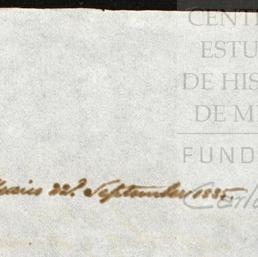 CENT
ESTU
DE HIS
DE M
FUND
Carl
22.. September 1885.